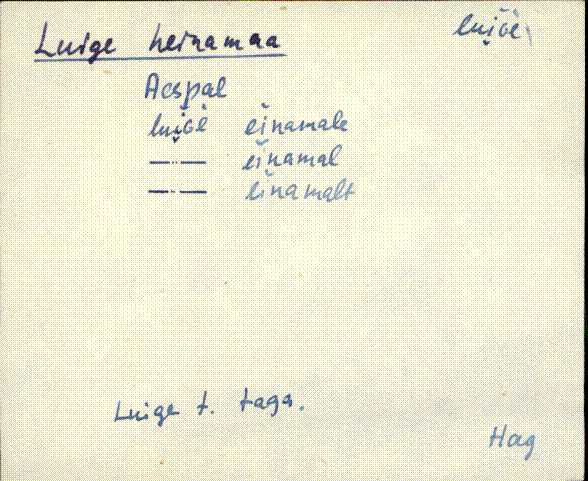 Luige heinamaa
luiɢĕ̀
Aespal
lui̭ɢĕ̀ ĕinamale
—··— ĕinamal
—··— ĕinamalt
Luige t. taga.
Hag